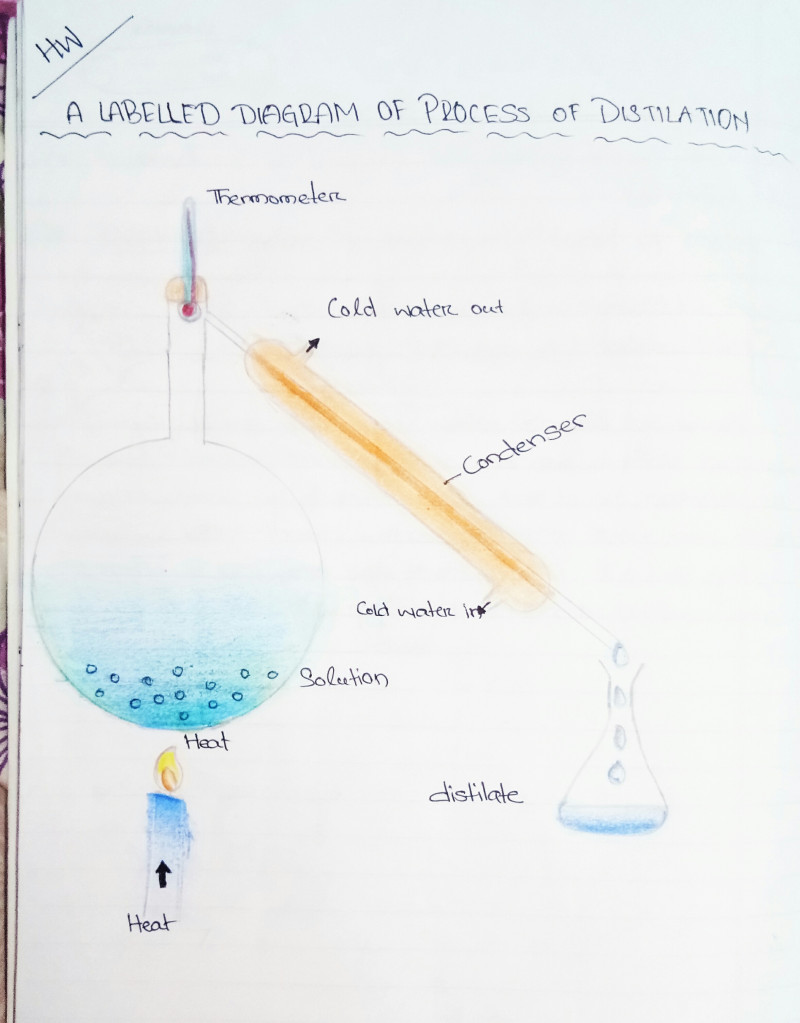 HW
A LABELLED DIAGRAM OF PROCESS OF DISTILATION
Thermometer
Cold water out
Condenser
Cold water in
Solution
Heat
distilate
Heat